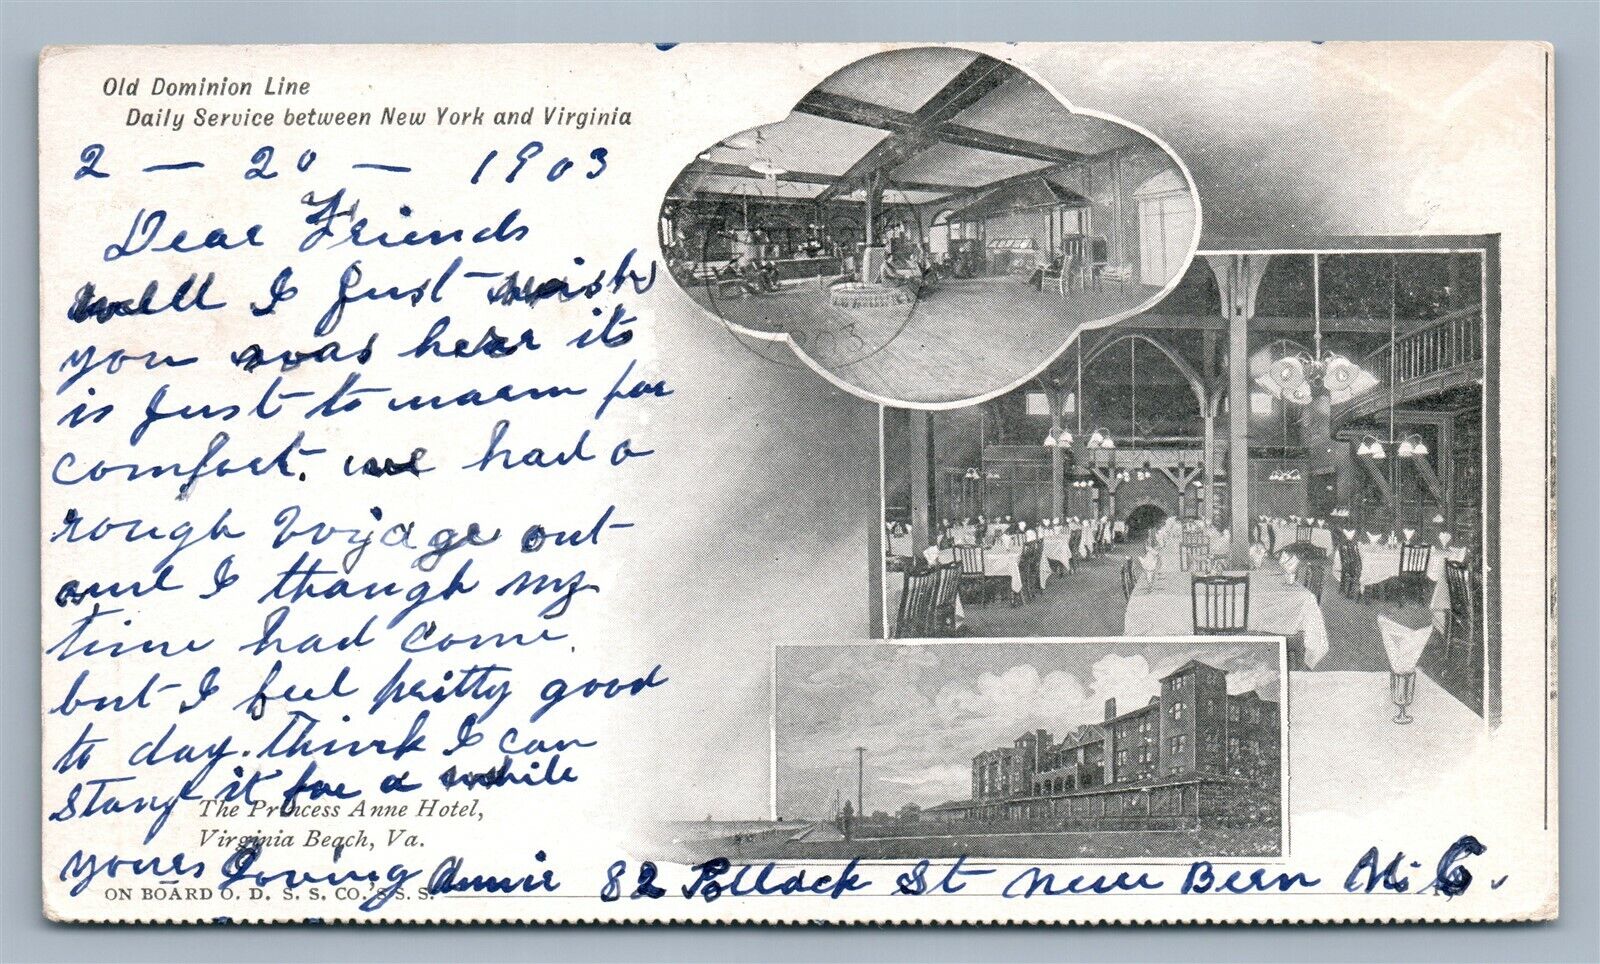 Old Dominion Line
Daily Service between New York and Virginia
2 - 20 - 1903
Dear Friends
well I just wish
you was here its
is just to warm for
comfort. we had a
rough voyage out
and I though my
time had come.
but I feel pritty good
to day. think I can
stany it for a while
The Princess Anne Hotel,
Virginia Beach, Va.
yours Loving Annie 82 Pollock St New Bern N. C.
ON BOARD O. D. S. S. CO.'S S. S.
1903